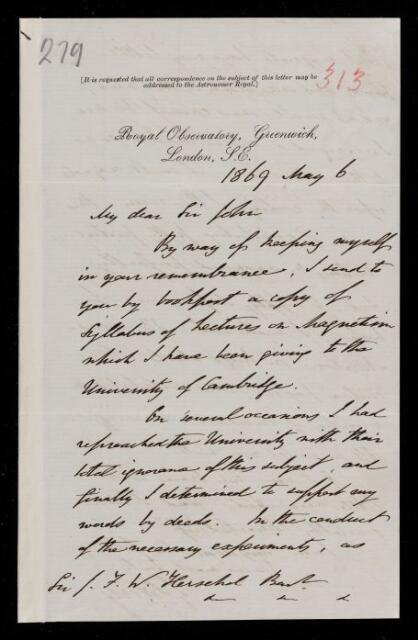 279
[It is requested that all correspondence on the subject of this letter may be
addressed to the Astronomer Royal.]
313
Royal Observatory, Greenwich,
London, S.E.
1869 May 6
My dear Sir John
By way of keeping myself
in your remembrance, I send to
you by bookpost a copy of
Syllabus of Lectures on Magnetism
which I have been giving to the
University of Cambridge.
On several occasions I had
reproached the University with their
total ignorance of this subject, and
finally I determined to support my
words by deeds. In the conduct
of the necessary experiments, as
Sir J. F. W. Herschel Bart.